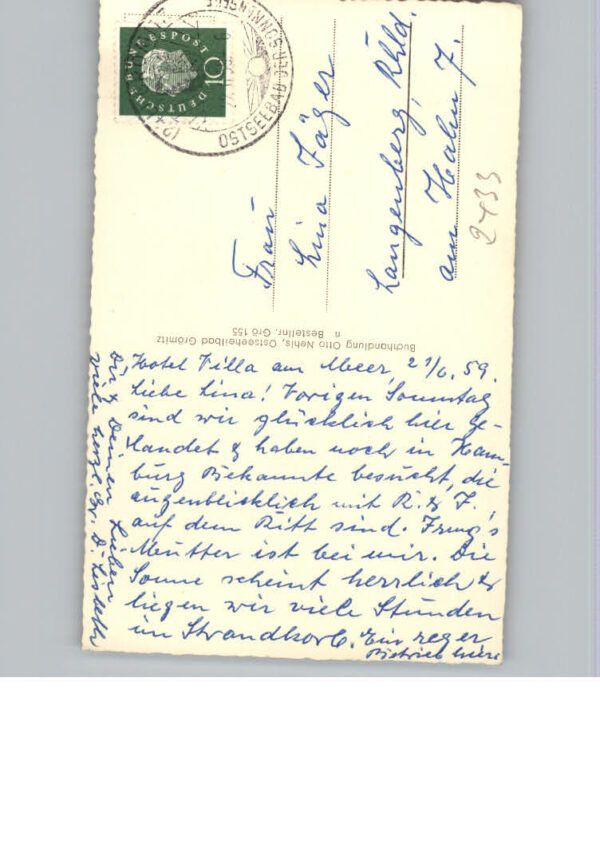 DEUTSCHE BUNDESPOST
10
OSTSEEBAD DER SONNENSEITE
Frau
Lina Jäger
Langenberg, Rhld.
am Hahn 7.
2433
Buchhandlung Otto Nehls, Ostseeheilbad Grömitz
n Bestellnr. Grö 155
Hotel Villa am Meer, 21/6. 59.
Liebe Lina! Vorigen Sonntag
sind wir glücklich hier ge-
landet & haben noch in Ham-
burg Bekannte besucht, die
augenblicklich mit R. & F.
auf dem Ritt sind.
Mutter ist bei mir. Die
Sonne scheint herrlich &
liegen wir viele Stunden
im Strandkorb. Ein reger
Betrieb hier.
Dir & Deinen Lieben
viele herzl. Gr. D.